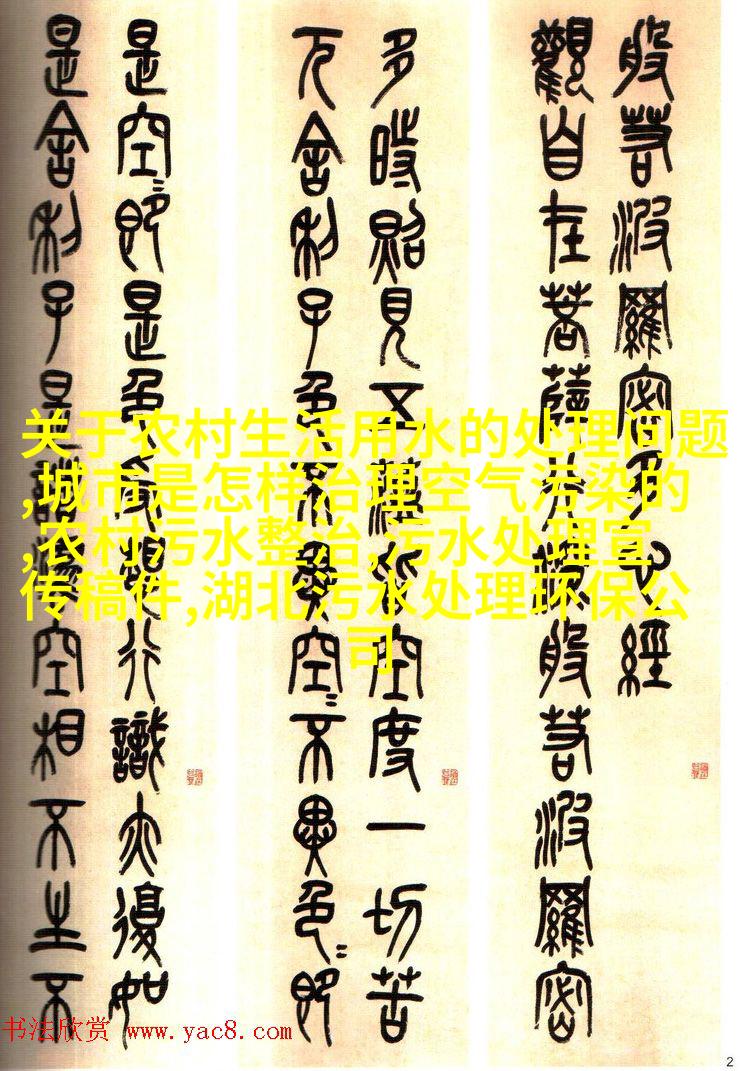 般若波羅密多心經
觀自在菩薩行深般若波羅密
多時照見五蘊皆空度一切苦
厄舍利子色不異空〻不異色〻即
是空〻即是色受想行識亦復如
是舍利子是諸法空相不生不
关于农村生活用水的处理问题
,城市是怎样治理空气污染的
,农村污水整治,污水处理宣
传稿件,湖北污水处理环保公
司
书法欣赏 www.yac8.com
2